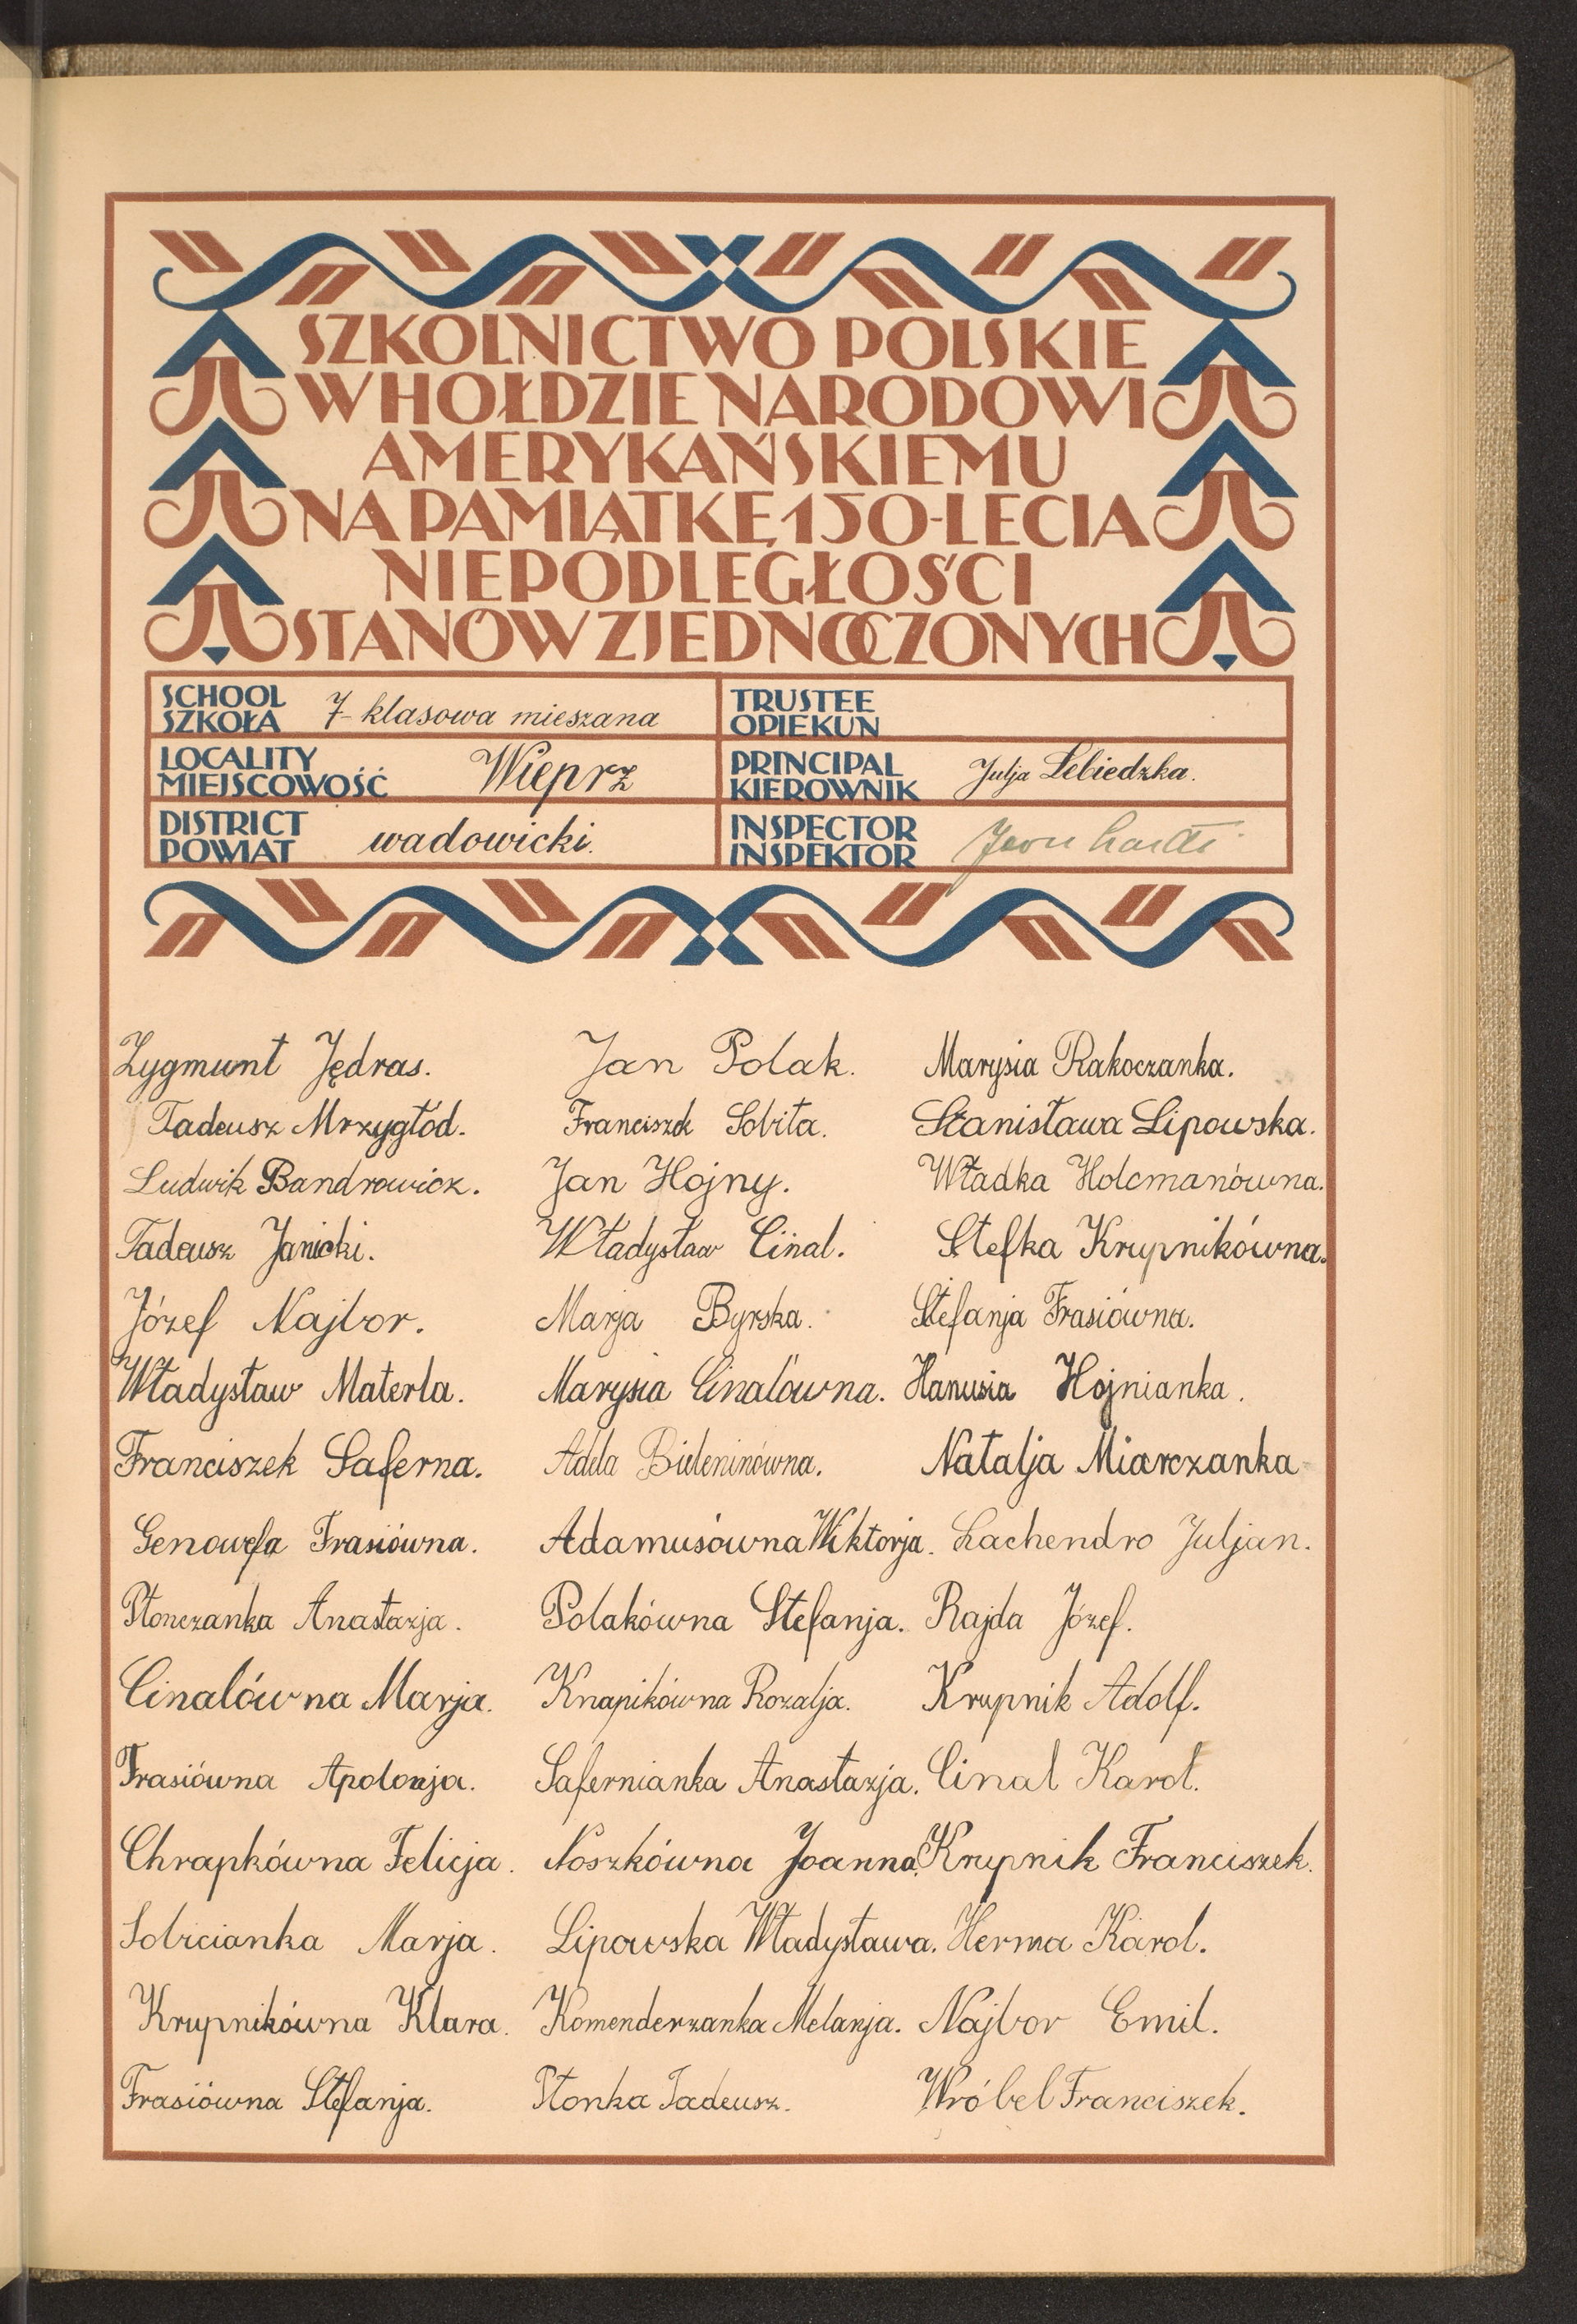 SZKOLNICTWO POLSKIE
W HOŁDZIE NARODOWI
AMERYKAŃSKIEMU
NA PAMIĄTKĘ 150-LECIA
NIEPODLEGŁOŚCI
STANÓW ZJEDNOCZONYCH
SCHOOL
SZKOŁA 7-klasowa mieszana
TRUSTEE
OPIEKUN
LOCALITY
MIEJSCOWOŚĆ Wieprz
PRINCIPAL
KIEROWNIK Julja Lebiedzka.
DISTRICT
POWIAT wadowicki.
INSPECTOR
INSPEKTOR
Zygmunt Jędras.
Tadeusz Mrzygłód.
Ludwik Bandrowicz.
Tadeusz Janicki.
Józef Najbor.
Władysław Materla.
Franciszek Saferna.
Genowefa Frasiówna.
Płonczanka Anastazja.
Cinalówna Marja.
Frasiówna Apolonja.
Chrapkówna Felicja.
Sobicianka Marja.
Krupnikówna Klara.
Frasiówna Stefanja.
Jan Polak.
Franciszek Sobita.
Jan Hojny.
Władysław Cinal.
Marja Byrska.
Marysia Cinalówna.
Adela Bieleninówna.
Adamusówna Wiktorja.
Polakówna Stefanja.
Knapikówna Rozalja.
Safernianka Anastazja.
Noszkówna Joanna.
Lipowska Władysława.
Komenderzanka Melanja.
Płonka Tadeusz.
Marysia Rakoczanka.
Stanisława Lipowska.
Władka Holcmanówna.
Stefka Krupnikówna.
Stefanja Frasiówna.
Hanusia Hojnianka.
Natalja Miarczanka
Lachendro Juljan.
Rajda Józef.
Krupnik Adolf.
Cinal Karol.
Krupnik Franciszek.
Herma Karol.
Najbor Emil.
Wróbel Franciszek.